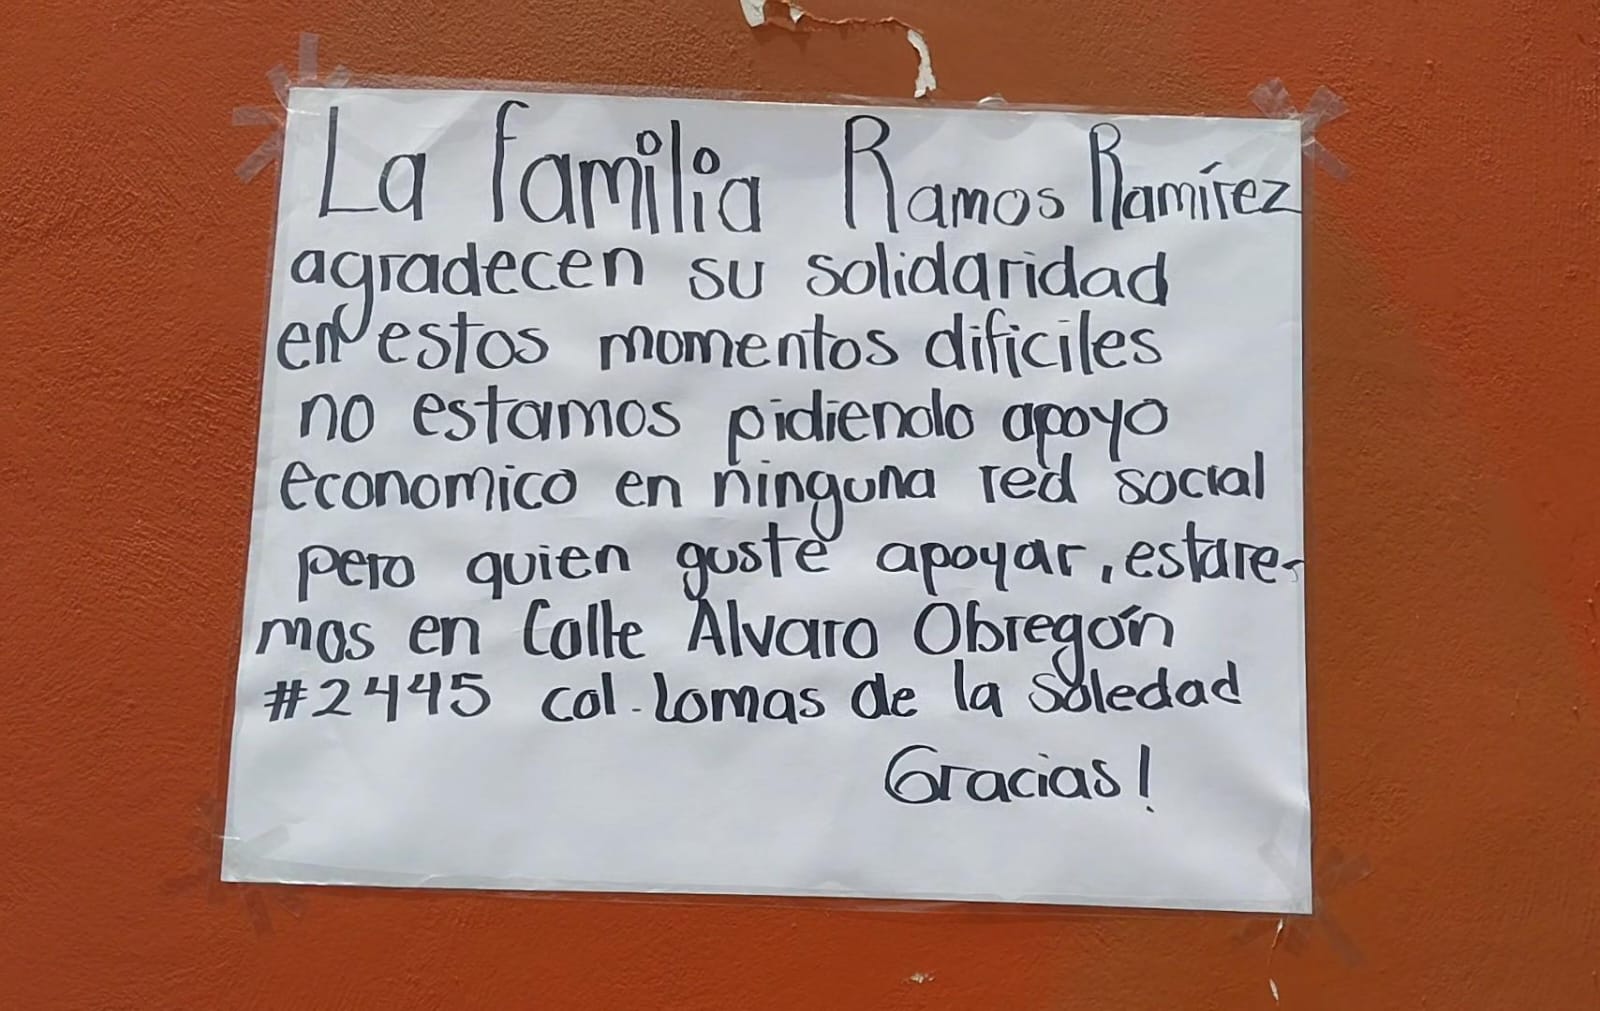 La familia Ramos Ramírez
agradecen su solidaridad
en estos momentos dificiles
no estamos pidiendo apoyo
economico en ninguna red social
pero quien guste apoyar, estare-
mos en Calle Alvaro Obregón
#2445 col. Lomas de la Soledad
Gracias!